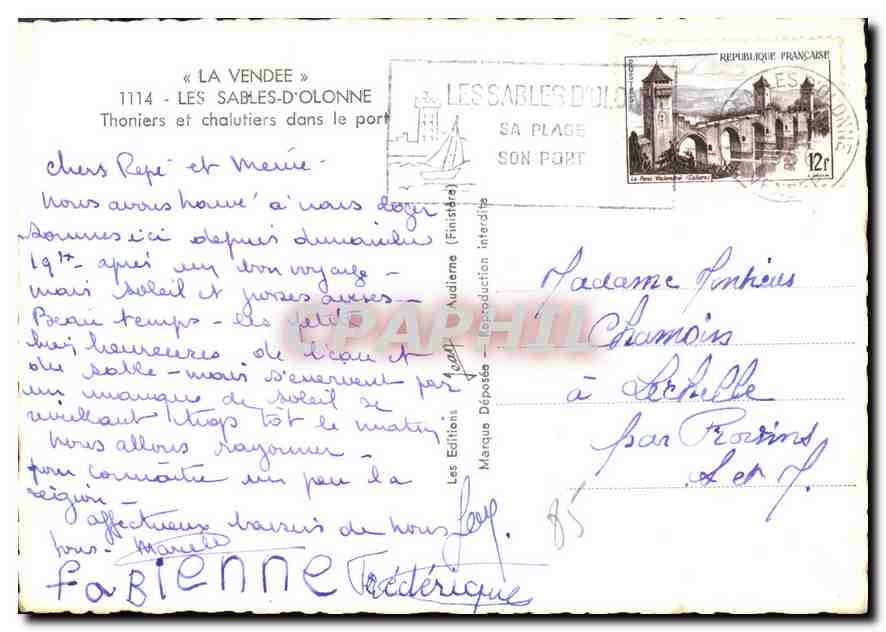 « LA VENDEE »
1114 - LES SABLES-D'OLONNE
Thoniers et chalutiers dans le port
LES SABLES D'OLO
SA PLAGE
SON PORT
REPUBLIQUE FRANÇAISE
12F
Le Pont Valentré (Cahors)
LES SABLES D'OLONNE
chers Pepé et Mémé -
nous avons trouvé à nous loger
sommes ici depuis dimanche
19h - après un bon voyage -
mais soleil et averses -
Beau temps - les petites
très heureuses de l'eau et
du sable - mais s'énervent par
un manque de soleil se
réveillant trop tôt le matin
nous allons rayonner -
pour connaître un peu la
région -
affectueux baisers de nous
tous - 
FABIENNE Frédérique
Les Editions Jean Audierne (Finistère)
Marque Déposée - Reproduction interdite
CPAPHIL
Madame
Chamoin
à Léchelle
par Provins
S et M.
85